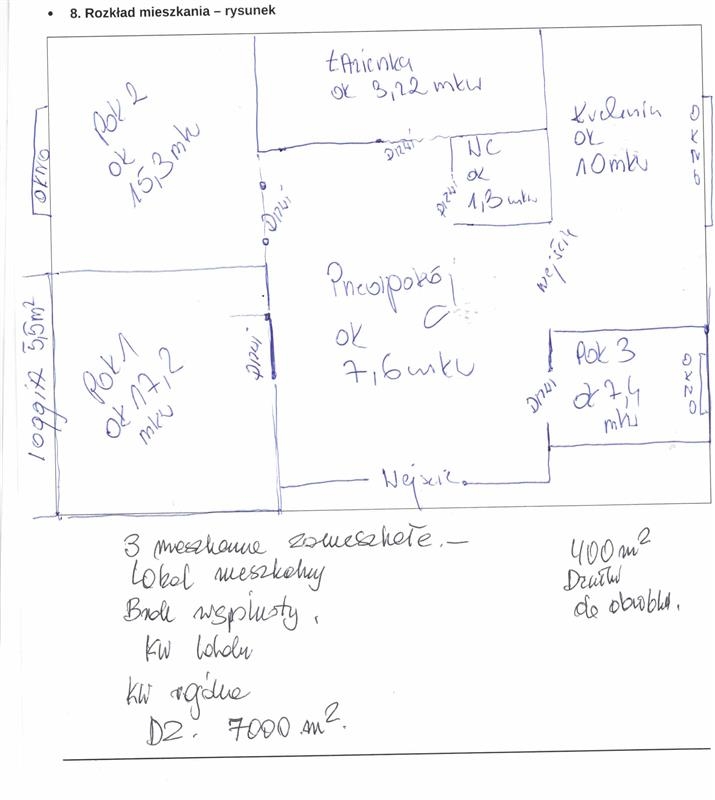 8. Rozkład mieszkania – rysunek
Pok 2
ok
15,3 mk
OKNO
Łazienka
ok 3,22 mkw
Drzwi
WC
ok
1,3 mkw
Drzwi
Kuchnia
ok
10 mkw
OKNO
Drzwi
wejście
Przedpokój
ok
7,6 mkw
loggia 5,5 m²
Pok 1
ok 17,2
mkw
Drzwi
Pok 3
ok 7,4
mkw
OKNO
Drzwi
Wejście
3 mieszkania zamieszkałe.–
Lokal mieszkalny
Brak wspólnoty.
KW lokalu
KW
DZ. 7000 m².
400 m²
Działki
do obrobku.